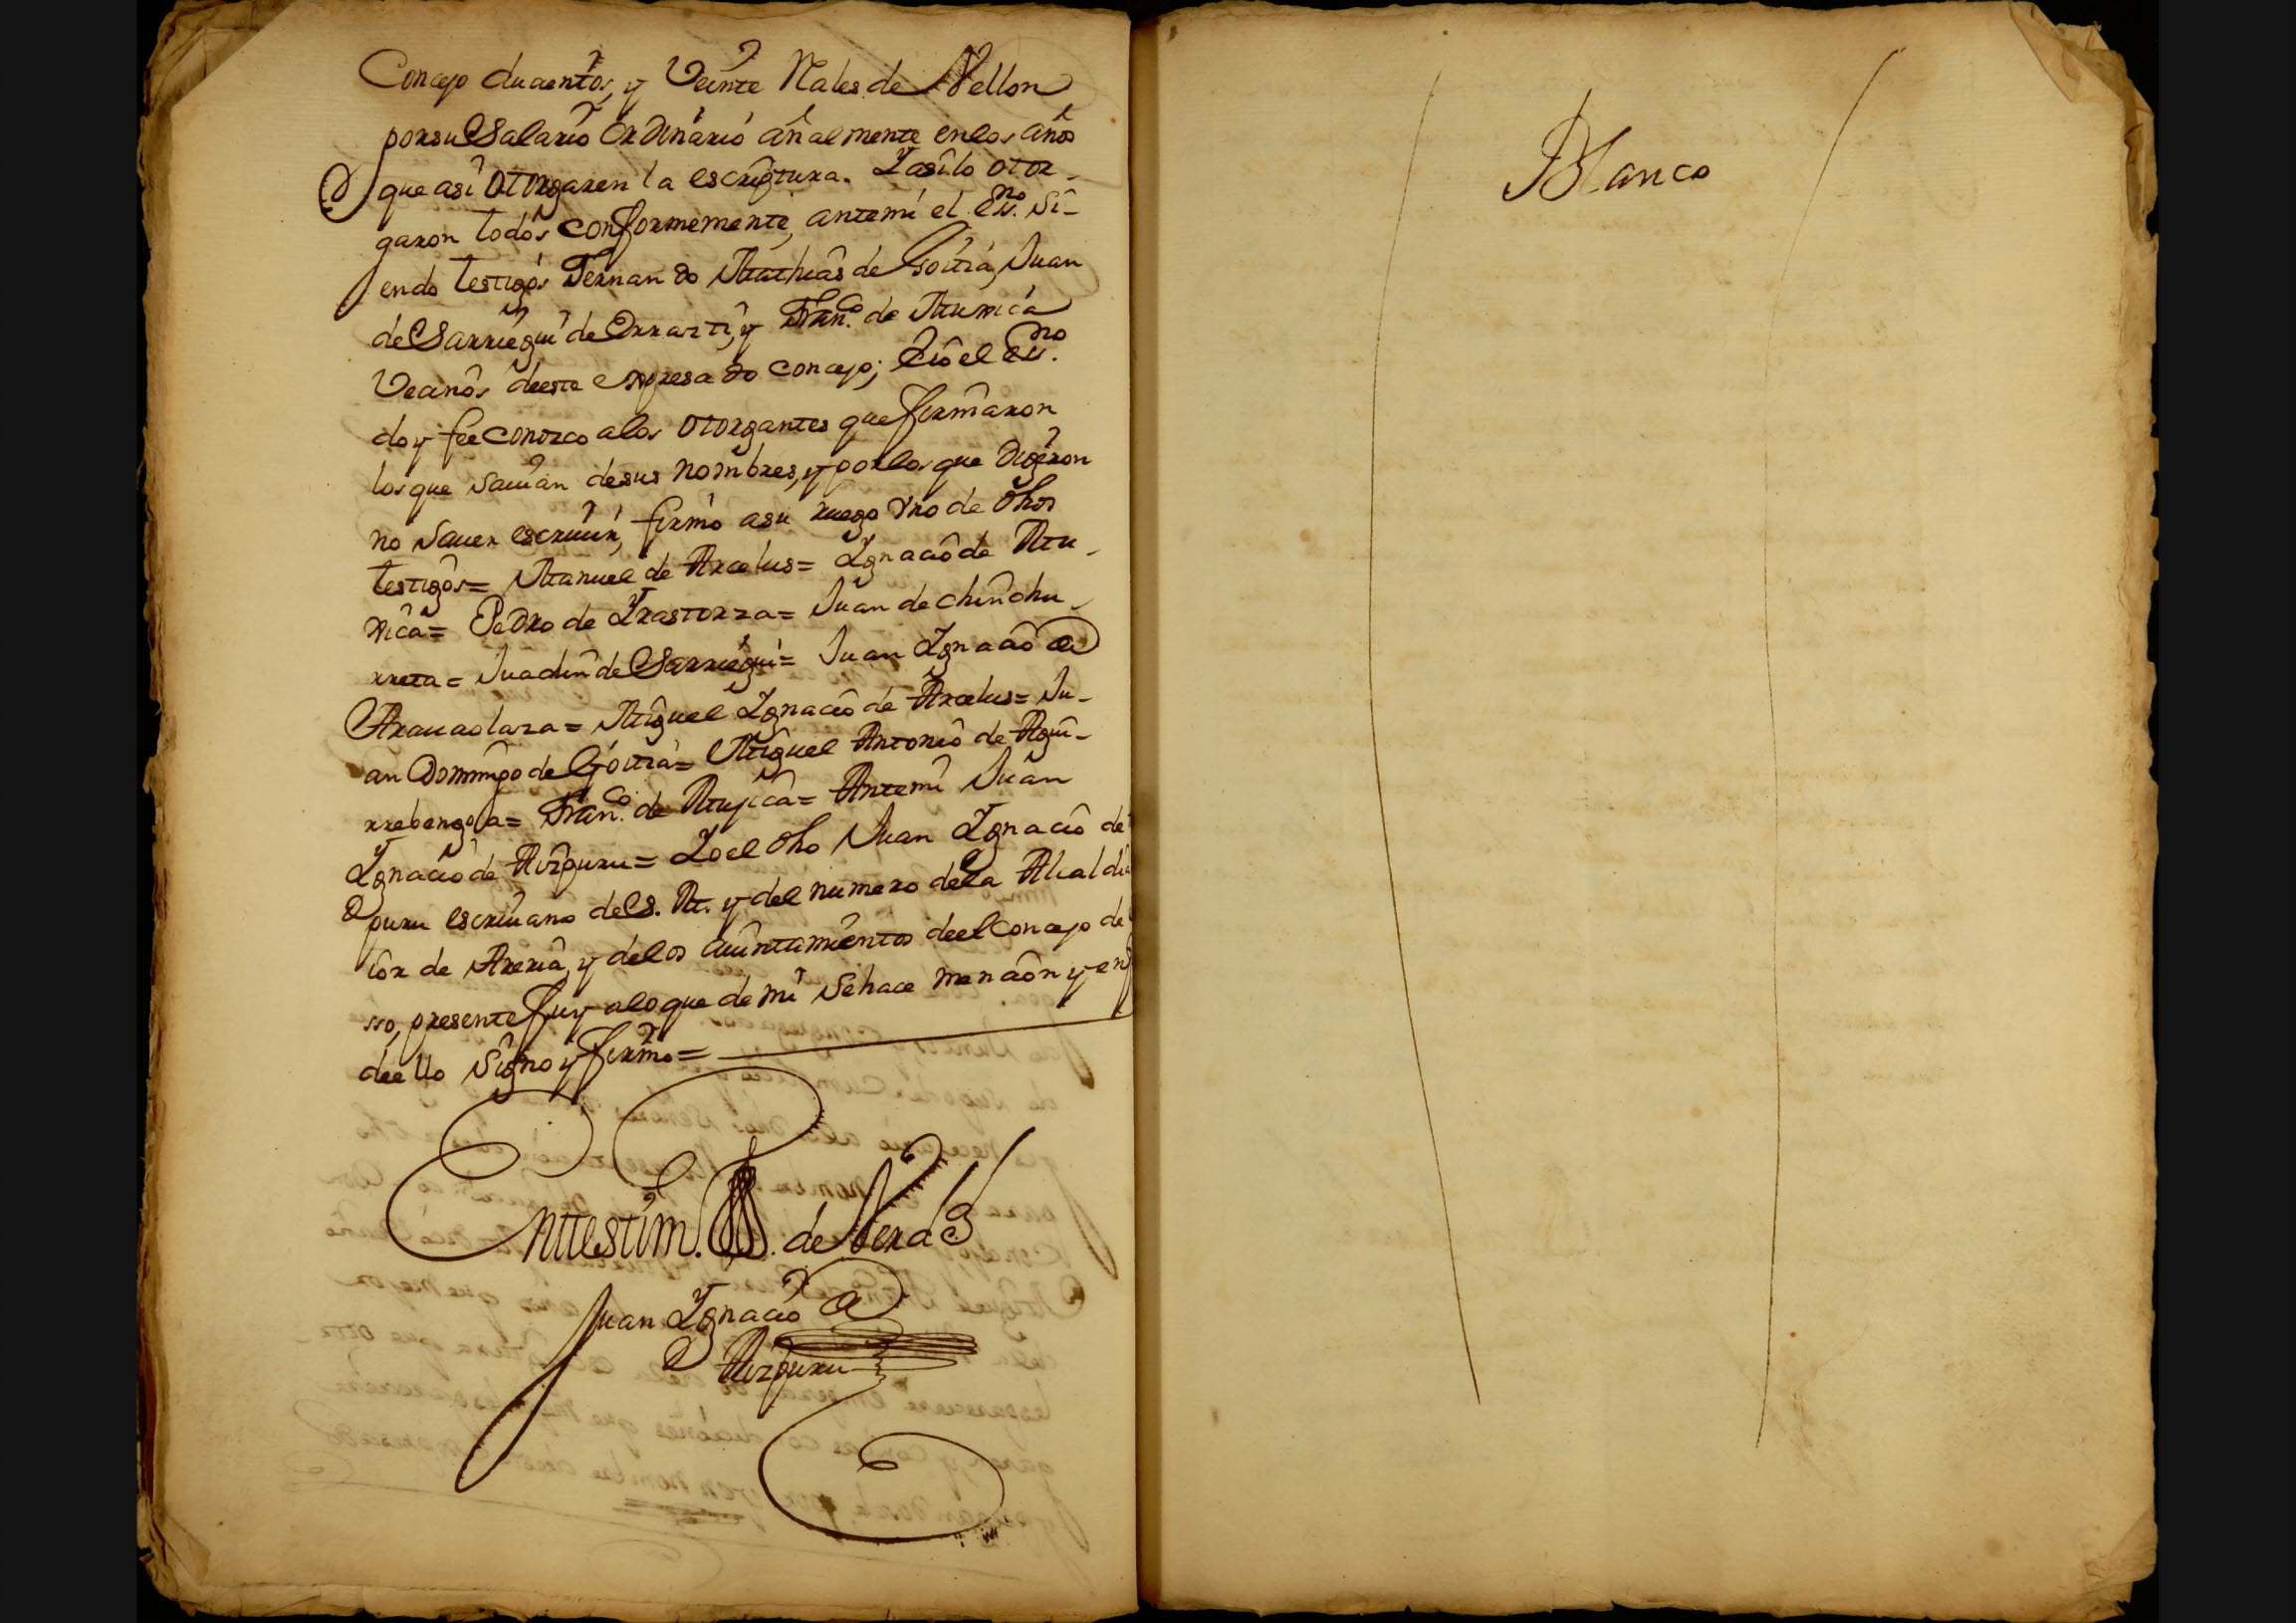 Concejo ducientos, y Veinte Rales de Vellon
por su Salario Ordinario añalmente en los años
que asi otorgaren la escriptura. Y asi lo otor-
garon todos conformemente, ante mi el Esno. si-
endo testigos Fernando Mathias de Goitia, Juan
de Sarriegui de Orrazti, y Franco. de Mumica
Vecinos de este expresado concejo; E io el Esno.
doy fee conozco a los otorgantes que firmaron
los que savian de sus nombres, y por los que digeron
no saver escriuir, firmó a su ruego Vno de dhos
testigos= Manuel de Arcelus= Ygnacio de Mu-
xica= Pedro de Yrastorza= Juan de Chinchu-
rreta= Juachin de Sarriegui= Juan Ygnacio de
Arauaolaza= Miguel Ygnacio de Arcelus= Ju-
an Domingo de Goitia= Miguel Antonio de Agui-
rrebengoa= Franco. de Mujica= Ante mi Juan
Ygnacio de Aizpuru= Yo el dho Juan Ygnacio de
puru escriuano de S. M. y del numero de la Alcaldia
ior de Areria, y de los Aiuntamientos de el Concejo de
sso, presente fuy a lo que de mi se hace mencion y en f
de ello signo y firmo=
En testim. de Verd.
Juan Ygnacio de
Aizpuru
Blanco